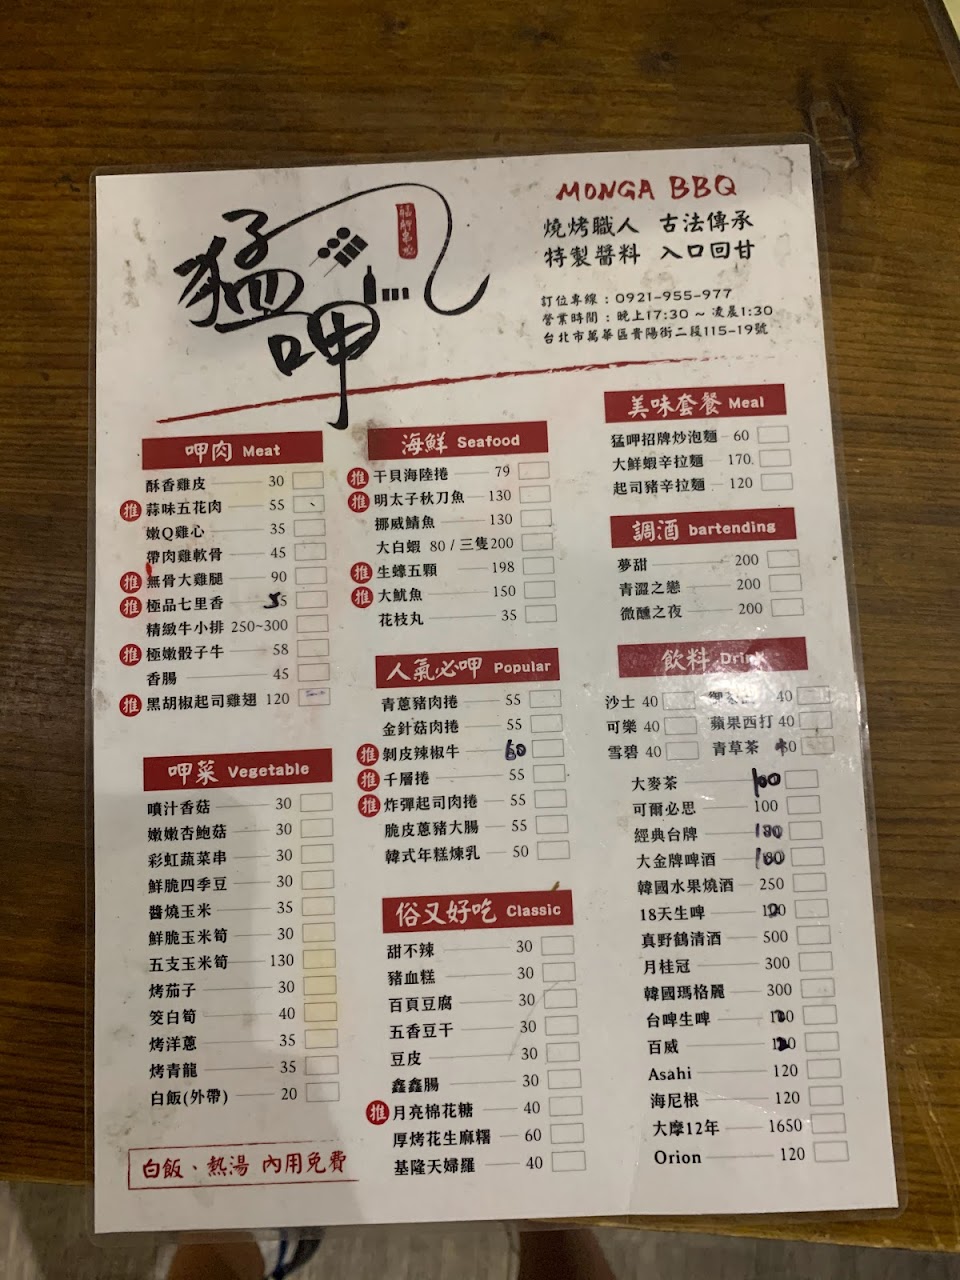 猛呷
艋舺串燒
MONGA BBQ
燒烤職人 古法傳承
特製醬料 入口回甘
訂位專線：0921-955-977
營業時間：晚上17:30 ~ 凌晨1:30
台北市萬華區貴陽街二段115-19號
呷肉 Meat
酥香雞皮 30
推 蒜味五花肉 55
嫩Q雞心 35
帶肉雞軟骨 45
推 無骨大雞腿 90
推 極品七里香 55
精緻牛小排 250~300
推 極嫩骰子牛 58
香腸 45
推 黑胡椒起司雞翅 120
呷菜 Vegetable
噴汁香菇 30
嫩嫩杏鮑菇 30
彩虹蔬菜串 30
鮮脆四季豆 30
醬燒玉米 35
鮮脆玉米筍 30
五支玉米筍 130
烤茄子 30
筊白筍 40
烤洋蔥 35
烤青龍 35
白飯(外帶) 20
白飯、熱湯 內用免費
海鮮 Seafood
推 干貝海陸捲 79
推 明太子秋刀魚 130
挪威鯖魚 130
大白蝦 80 / 三隻200
推 生蠔五顆 198
推 大魷魚 150
花枝丸 35
人氣必呷 Popular
青蔥豬肉捲 55
金針菇肉捲 55
推 剝皮辣椒牛 60
推 千層捲 55
推 炸彈起司肉捲 55
脆皮蔥豬大腸 55
韓式年糕煉乳 50
俗又好吃 Classic
甜不辣 30
豬血糕 30
百頁豆腐 30
五香豆干 30
豆皮 30
鑫鑫腸 30
推 月亮棉花糖 40
厚烤花生麻糬 60
基隆天婦羅 40
美味套餐 Meal
猛呷招牌炒泡麵 60
大鮮蝦辛拉麵 170
起司豬辛拉麵 120
調酒 bartending
夢甜 200
青澀之戀 200
微醺之夜 200
飲料 Drink
沙士 40 御茶園 40
可樂 40 蘋果西打 40
雪碧 40 青草茶
大麥茶 100
可爾必思 100
經典台啤
大金牌啤酒
韓國水果燒酒 250
18天生啤
真野鶴清酒 500
月桂冠 300
韓國瑪格麗 300
台啤生啤
百威
Asahi 120
海尼根 120
大摩12年 1650
Orion 120